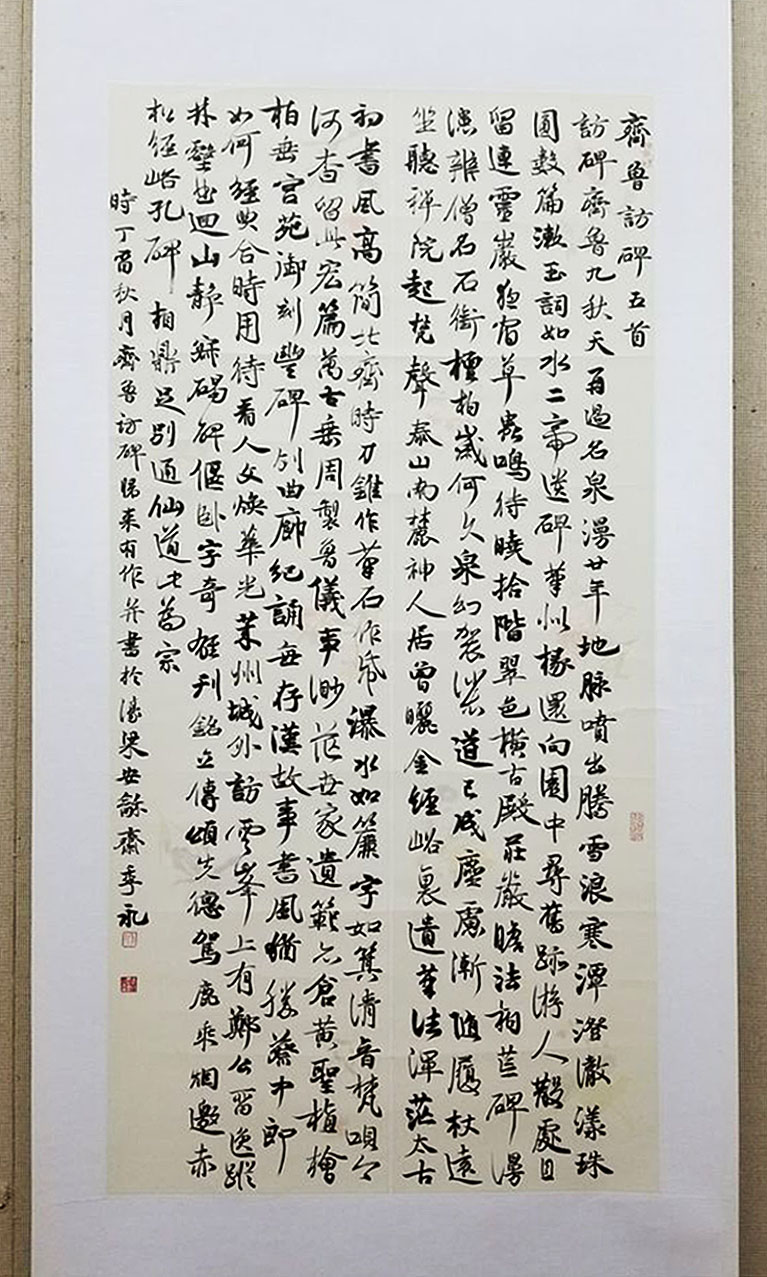 齊魯訪碑五首
訪碑齊魯九秋天再過名泉漫廿年地脉噴出騰雪浪寒潭澄澈漾珠
圓數篇漱玉詞如水二帝遺碑筆似椽還向園中尋舊跡游人散處且
留連靈巖夜宿草蟲鳴待曉拾階翠色橫古殿莊嚴瞻法相豐碑漫
漶辨僧名石銜檀柏歲何久泉幻袈裟道已成塵慮漸隨履杖遠
坐聽禪院起梵聲泰山南麓神人居曾曬金經峪裏遺筆法渾茫太古
初書風高簡北齊時刀錐作筆石作紙瀑水如簾字如箕清音梵唄今
何杳留此宏篇萬古垂周製魯儀事渺茫世家遺範亦倉黃聖楷檜
柏垂宮苑御刻豐碑列曲廊紀誦每存漢故事書風猶勝蔡中郎
如何經典合時用待看人文煥華光萊州城外訪雲峰上有鄭公留逸蹤
林壑曲迴山靜穆碣碑偃卧字奇雄刊銘立傳頌先德駕鹿乘烟邀赤
松經峪孔碑相鼎足別通仙道書為宗
時丁酉秋月齊魯訪碑歸來有作并書於 梁世龢齋季永